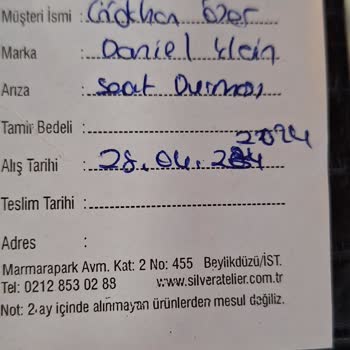 Müşteri İsmi : Gökhan Özer
Marka : Daniel Klein
Arıza : Saat Durmuş
Tamir Bedeli :
Alış Tarihi : 28.04.2024
Teslim Tarihi :
Adres :
Marmarapark Avm. Kat: 2 No: 455 Beylikdüzü/İST.
Tel: 0212 853 02 88 www.silveratelier.com.tr
Not: 2 ay içinde alınmayan ürünlerden mesul değiliz.